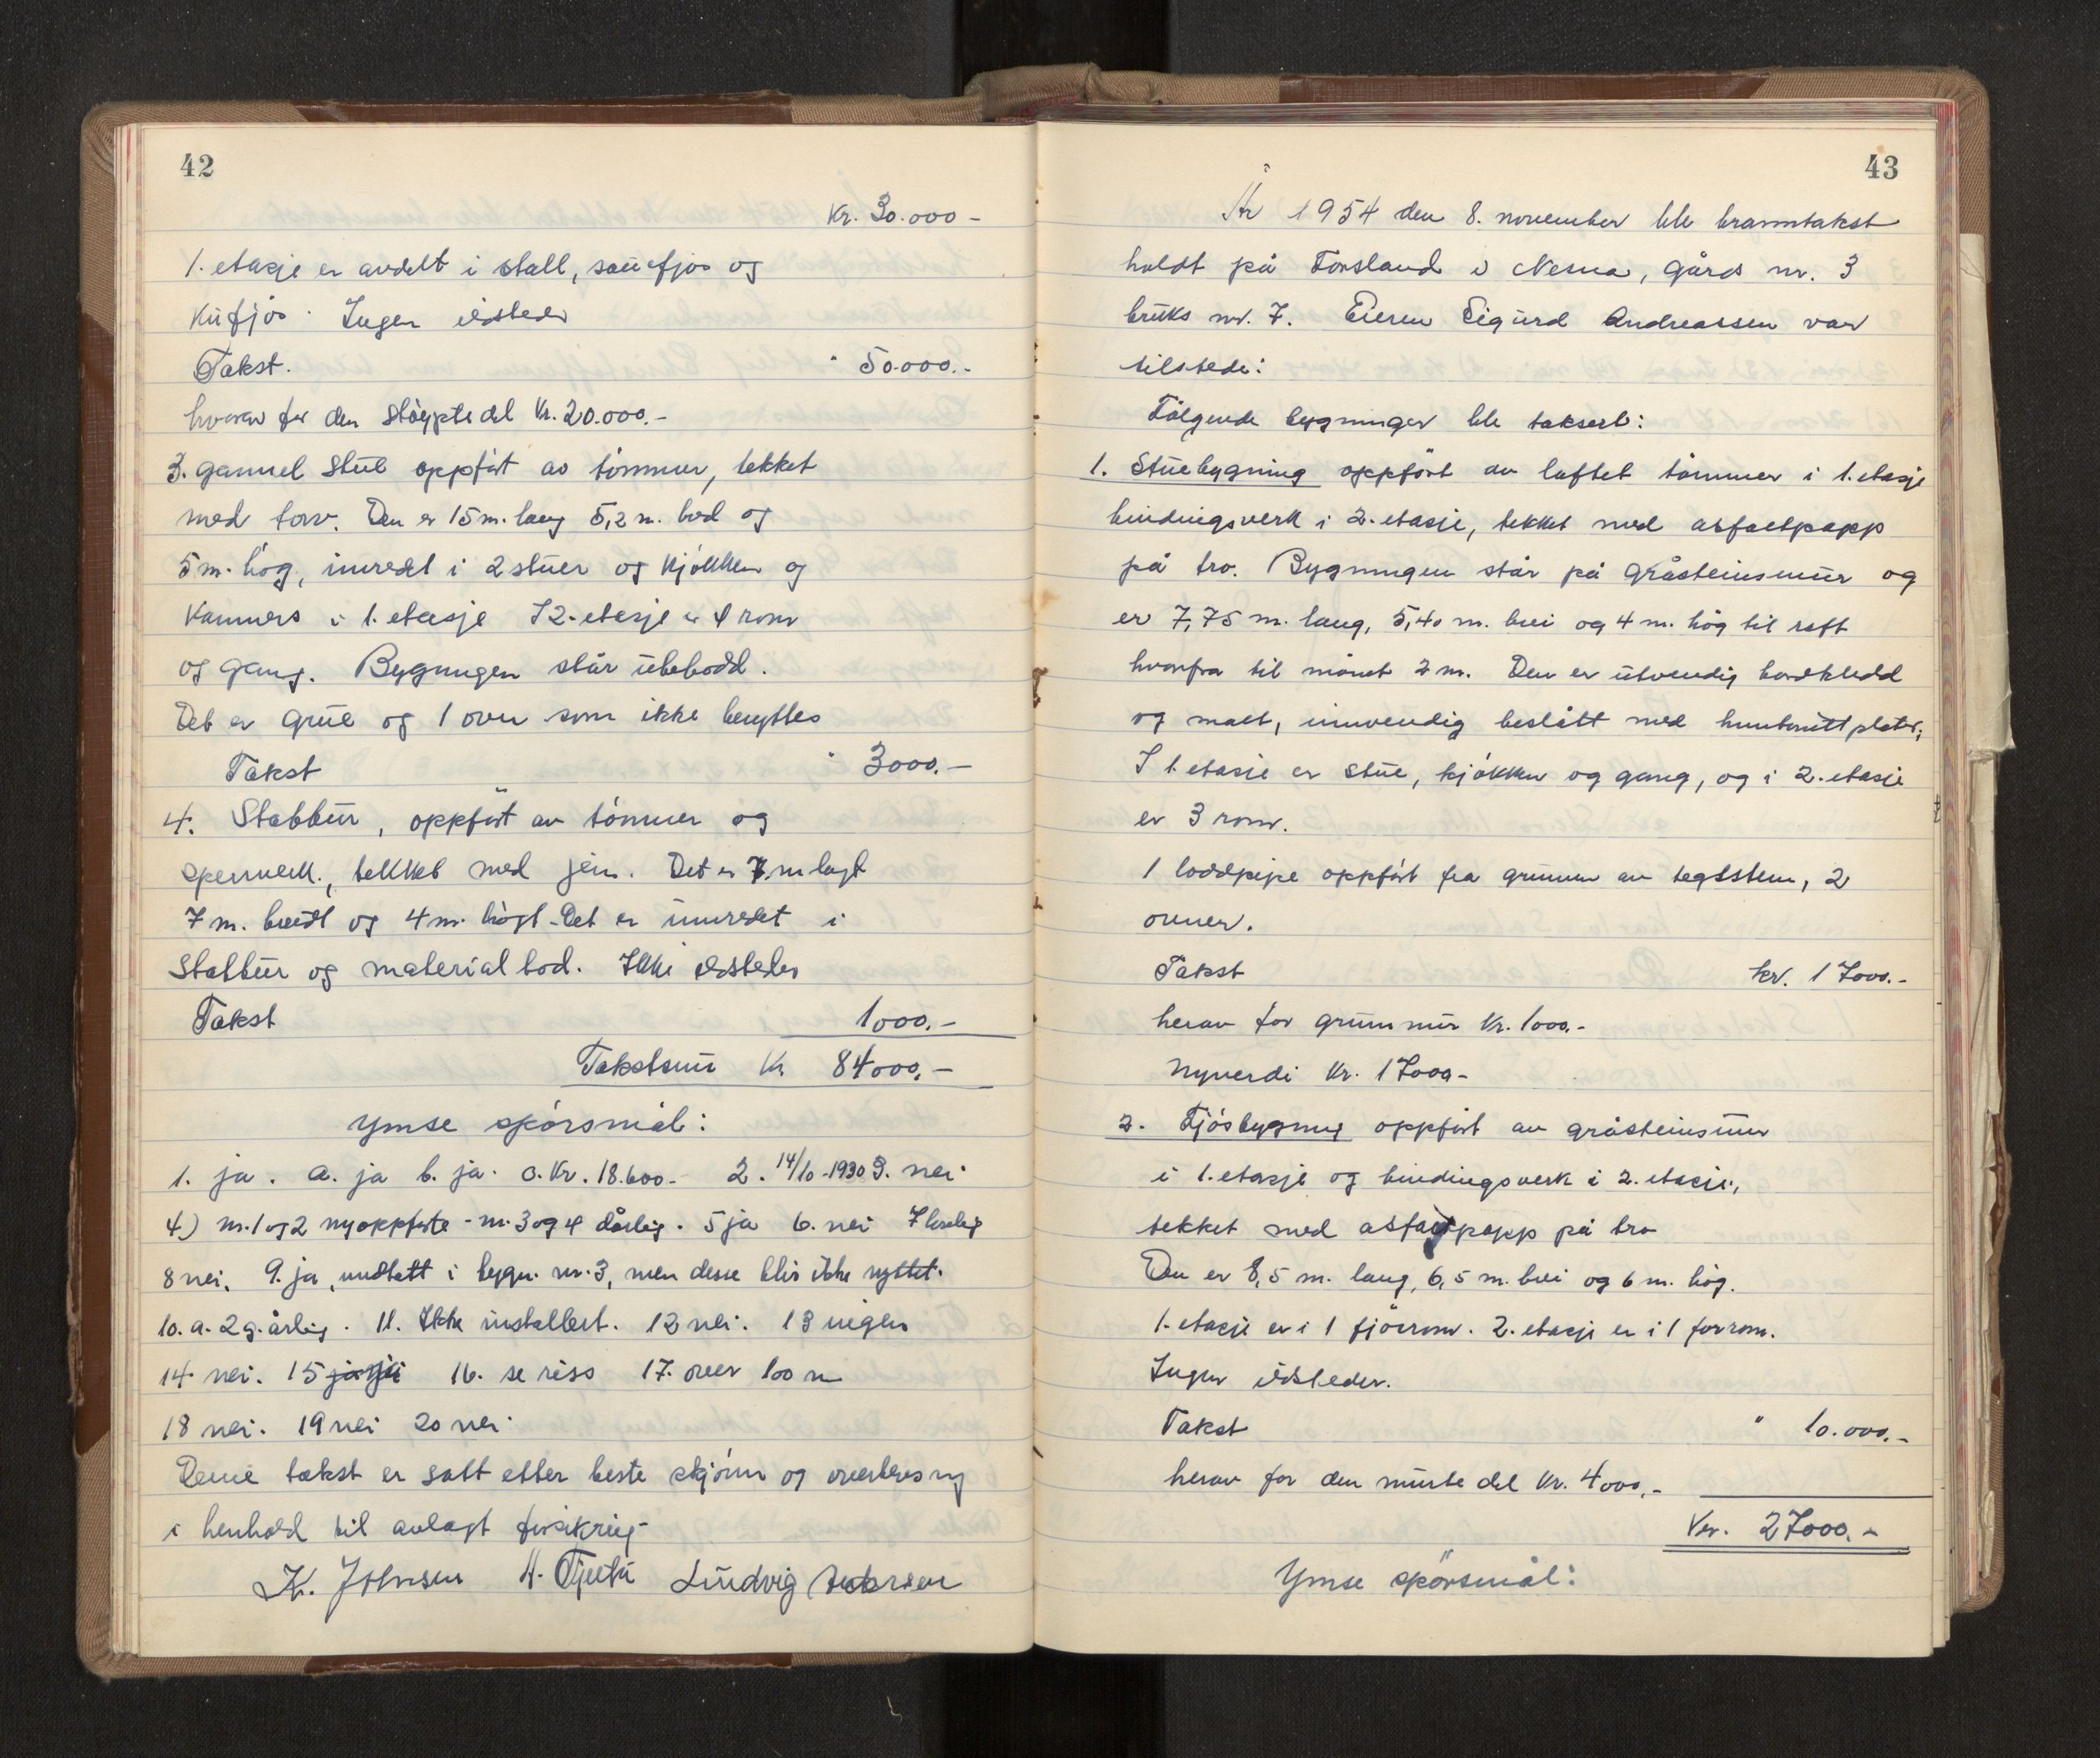 42
Kr. 30.000 -
1. etasje er avdelt i stall, sauefjøs og
kufjøs. Ingen ildsteder
Takst. " 50000.-
hvorav for den støypte del Kr. 20.000.-
3. gammel stue oppført av tømmer, tekket
med torv. Den er 15 m. lang 5,2 m. bred og
5 m. høg, innredet i 2 stuer og kjøkken og
kammers i 1. etasje I 2. etasje er 4 rom
og gang. Bygningen står ubebodd.
Det er grue og 1 ovn som ikke benyttes
Takst " 3000.-
4. Stabbur, oppført av tømmer og
sperrverk., tekket med jern. Det er 7 m langt
7 m. bredt og 4 m. høgt. Det er innredet i
Stabbur og materialbod. Ikke ildsteder
Takst 1000.-
Takstsum Kr 84000.-
Ymse spørsmål:
1. ja. a. ja b. ja. c. Kr. 18.600.- 2. 14/10-1930 3. nei
4) nr. 1 og 2 nyoppførte - nr. 3 og 4 dårlig. 5 ja 6. nei 7
8 nei. 9. ja, undtatt i bygn. nr. 3, men desse blir ikke nyttet.
10. a. 2 g. årlig. 11. Ikke installert. 12 nei. 13 ingen
14. nei. 15 ja 16. se riss 17. over 100 m
18 nei. 19 nei 20 nei.
Denne takst er satt etter beste skjønn og overbevisng
i henhold til avlagt forsikring
K. Johnsen H. Ludvig
43
År 1954 den 8. november ble branntakst
holdt på Forsland i Nesna, gårds nr. 3
bruks nr. 7. Eieren Sigurd Andreassen var
tilstede:
Følgende bygninger ble taksert:
1. Stuebygning oppført av laftet tømmer i 1. etasje
bindingsverk i 2. etasje, tekket med asfaltpapp
på tro. Bygningen står på gråsteinsmur og
er 7,75 m. lang, 5,40 m. brei og 4 m. høg til raft
hvorfra til mønet 2 m. Den er utvendig bordkledd
og malt, innvendig beslått med huntonittplater.
I 1. etasje er stue, kjøkken og gang, og i 2. etasje
er 3 rom.
1 loddpipe oppført fra grunnen av teglstein, 2
ovner.
Takst kr. 17000.-
herav for grunnmur Kr. 1000.-
Nyverdi Kr. 17000-
2. Fjøsbygning oppført av gråsteinsmur
i 1. etasje og bindingsverk i 2. etasje,
tekket med asfaltpapp på tro
Den er 8,5 m. lang, 6,5 m. brei og 6 m. høg.
1. etasje er i 1 fjøsrom. 2. etasje er i 1 forrom.
Ingen ildsteder.
Takst " 10.000.-
herav for den murte del Kr. 4000.-
Kr. 27000.-
Ymse spørsmål: